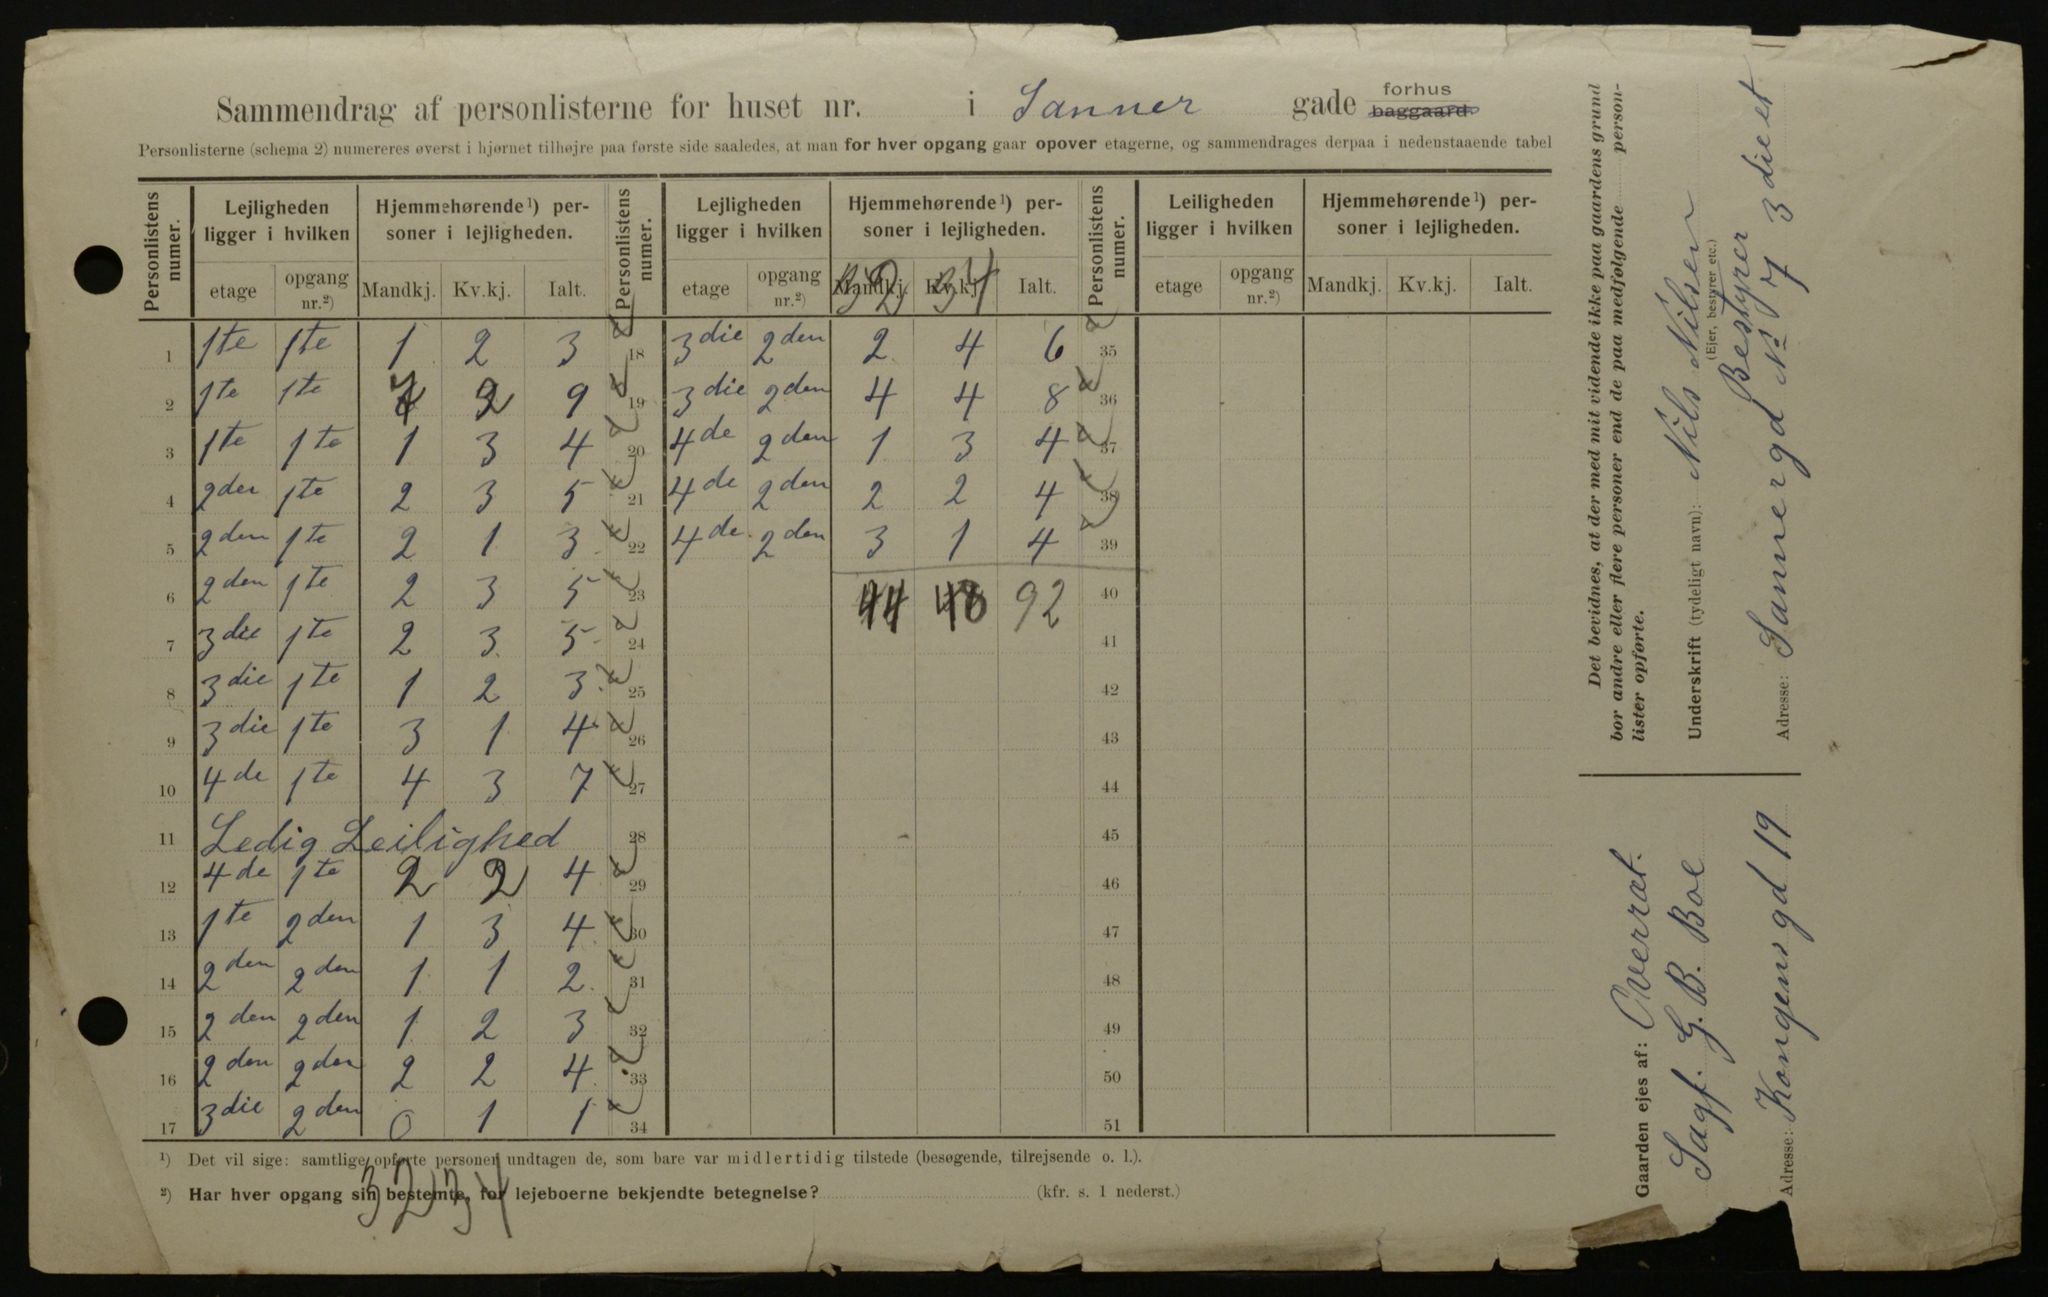 Sammendrag af personlisterne for huset nr. i Sanner gade forhus baggaard.
Personlisterne (schema 2) numereres øverst i hjørnet tilhøjre paa første side saaledes, at man for hver opgang gaar opover etagerne, og sammendrages derpaa i nedenstaaende tabel
Personlistens numer. Lejligheden ligger i hvilken Hjemmehørende¹) personer i lejligheden. Personlistens numer. Lejligheden ligger i hvilken Hjemmehørende¹) personer i lejligheden. Personlistens numer. Leiligheden ligger i hvilken Hjemmehørende¹) personer i lejligheden.
etage opgang nr.²) Mandkj. Kv.kj. Ialt. etage opgang nr.²) Mandkj. Kv.kj. Ialt. etage opgang nr.²) Mandkj. Kv.kj. Ialt.
32 34
1 1te 1te 1 2 3 18 3die 2den 2 4 6 35
2 1te 1te 7 2 9 19 3die 2den 4 4 8 36
3 1te 1te 1 3 4 20 4de 2den 1 3 4 37
4 2den 1te 2 3 5 21 4de 2den 2 2 4 38
5 2den 1te 2 1 3 22 4de 2den 3 1 4 39
6 2den 1te 2 3 5 23 44 48 92 40
7 3die 1te 2 3 5 24 41
8 3die 1te 1 2 3 25 42
9 3die 1te 3 1 4 26 43
10 4de 1te 4 3 7 27 44
11 Ledig Leilighed 28 45
12 4de 1te 2 2 4 29 46
13 1te 2den 1 3 4 30 47
14 2den 2den 1 1 2 31 48
15 2den 2den 1 2 3 32 49
16 2den 2den 2 2 4 33 50
17 3die 2den 0 1 1 34 51
¹) Det vil sige: samtlige opførte personer undtagen de, som bare var midlertidig tilstede (besøgende, tilrejsende o. l.).
²) Har hver opgang sin bestemte, for lejeboerne bekjendte betegnelse? (kfr. s. 1 nederst.)
32 34
Det bevidnes, at der med mit vidende ikke paa gaardens grund
bor andre eller flere personer end de paa medfølgende person-
lister opførte.
Underskrift (tydeligt navn): Nils Nilsen
(Ejer, bestyrer etc.)
Bestyrer
Adresse: Sannergd No 7 3die et
Gaarden ejes af: Overret.
Sagf. G. B. Boe
Adresse: Kongens gd 19